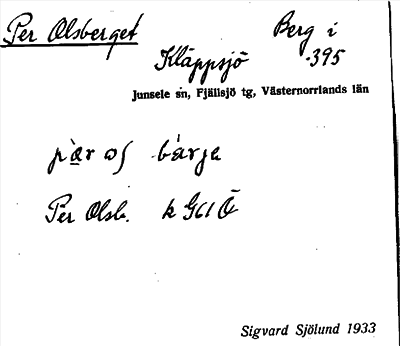 Per Olsberget Berg i
Kläppsjö -395
Junsele sn, Fjällsjö tg, Västernorrlands län
pàr os bárje
Per Olsb. k G61 Ö
Sigvard Sjölund 1933